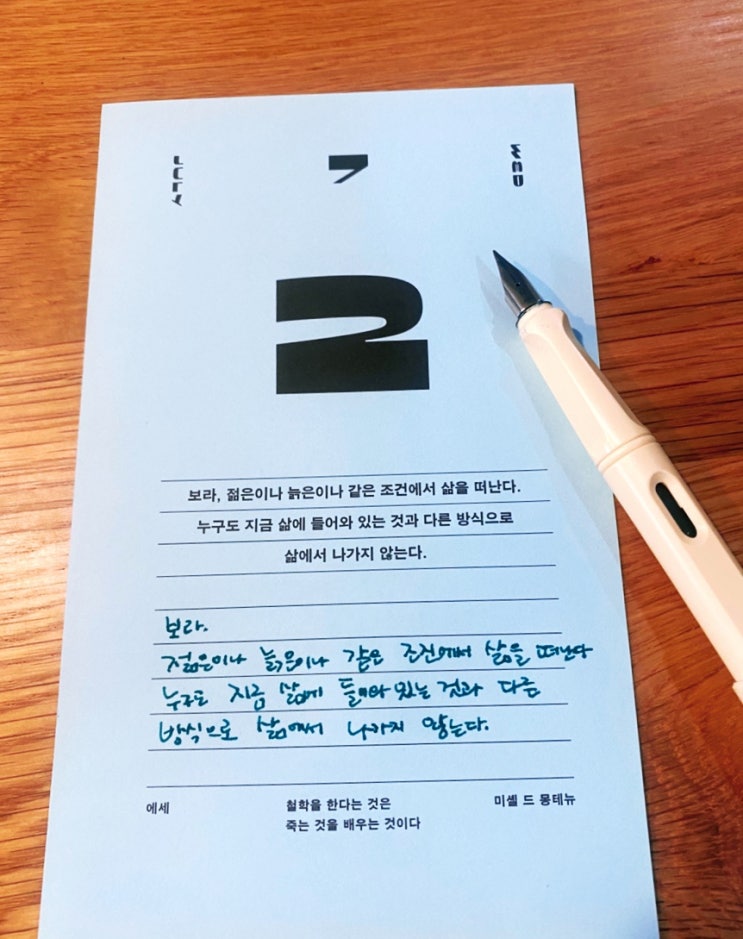 JULY 7 WED
2
보라, 젊은이나 늙은이나 같은 조건에서 삶을 떠난다.
누구도 지금 삶에 들어와 있는 것과 다른 방식으로
삶에서 나가지 않는다.
보라.
젊은이나 늙은이나 같은 조건에서 삶을 떠난다
누구도 지금 삶에 들어와 있는 것과 다른
방식으로 삶에서 나가지 않는다.
에세 철학을 한다는 것은 미셸 드 몽테뉴
죽는 것을 배우는 것이다